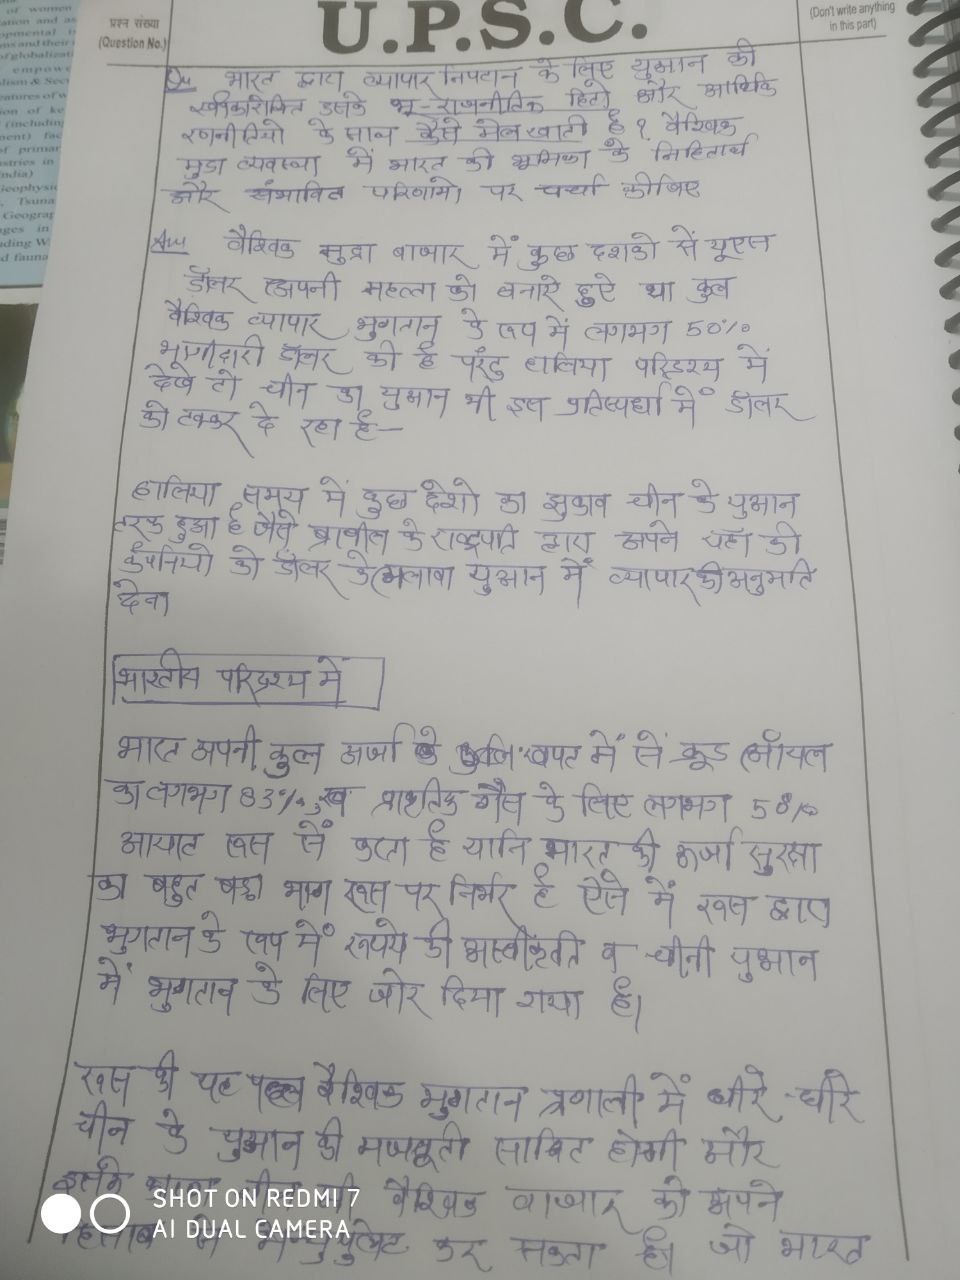 of women
प्रश्न संख्या
(Question No.)
U.P.S.C.
(Don't write anything
in this part)
Qu भारत द्वारा व्यापार निपटान के लिए युआन की
स्वीकारोक्ति उसके भू-राजनीतिक हितो और आर्थिक
रणनीतियो के साथ कैसे मेल खाती है ? वैश्विक
मुद्रा व्यवस्था में भारत की भूमिका के निहितार्थ
और संभावित परिणामो पर चर्चा कीजिए
Ans वैश्विक मुद्रा बाजार में कुछ दशको से यूएस
डॉलर अपनी महत्ता को बनाऐ हुऐ था कुल
वैश्विक व्यापार भुगतान के रूप में लगभग 50%
भागीदारी डॉलर की है परंतु हालिया परिदृश्य में
देखे तो चीन का युआन भी इस प्रतिस्पर्धा में डॉलर
को टक्कर दे रहा है-
हालिया समय में कुछ देशो का झुकाव चीन के युआन
तरफ हुआ है जैसे ब्राजील के राष्ट्रपति द्वारा अपने यहाँ की
कंपनियो को डॉलर के अलावा युआन में व्यापार की अनुमति
देना
भारतीय परिदृश्य में
भारत अपनी कुल ऊर्जा के खपत में से क्रूड ऑयल
का लगभग 83% एवं प्राकृतिक गैस के लिए लगभग 50%
आयात रूस से करता है यानि भारत की ऊर्जा सुरक्षा
का बहुत बड़ा भाग रूस पर निर्भर है ऐसे में रूस द्वारा
भुगतान के रूप में रूपये की अस्वीकृती व चीनी युआन
में भुगतान के लिए जोर दिया गया है।
रूस की यह पहल वैश्विक भुगतान प्रणाली में धीरे-धीरे
चीन के युआन की मजबूती साबित होगी और
इसके वैश्विक बाजार को अपने
हिसाब से कर सकता है। जो भारत
SHOT ON REDMI 7
AI DUAL CAMERA